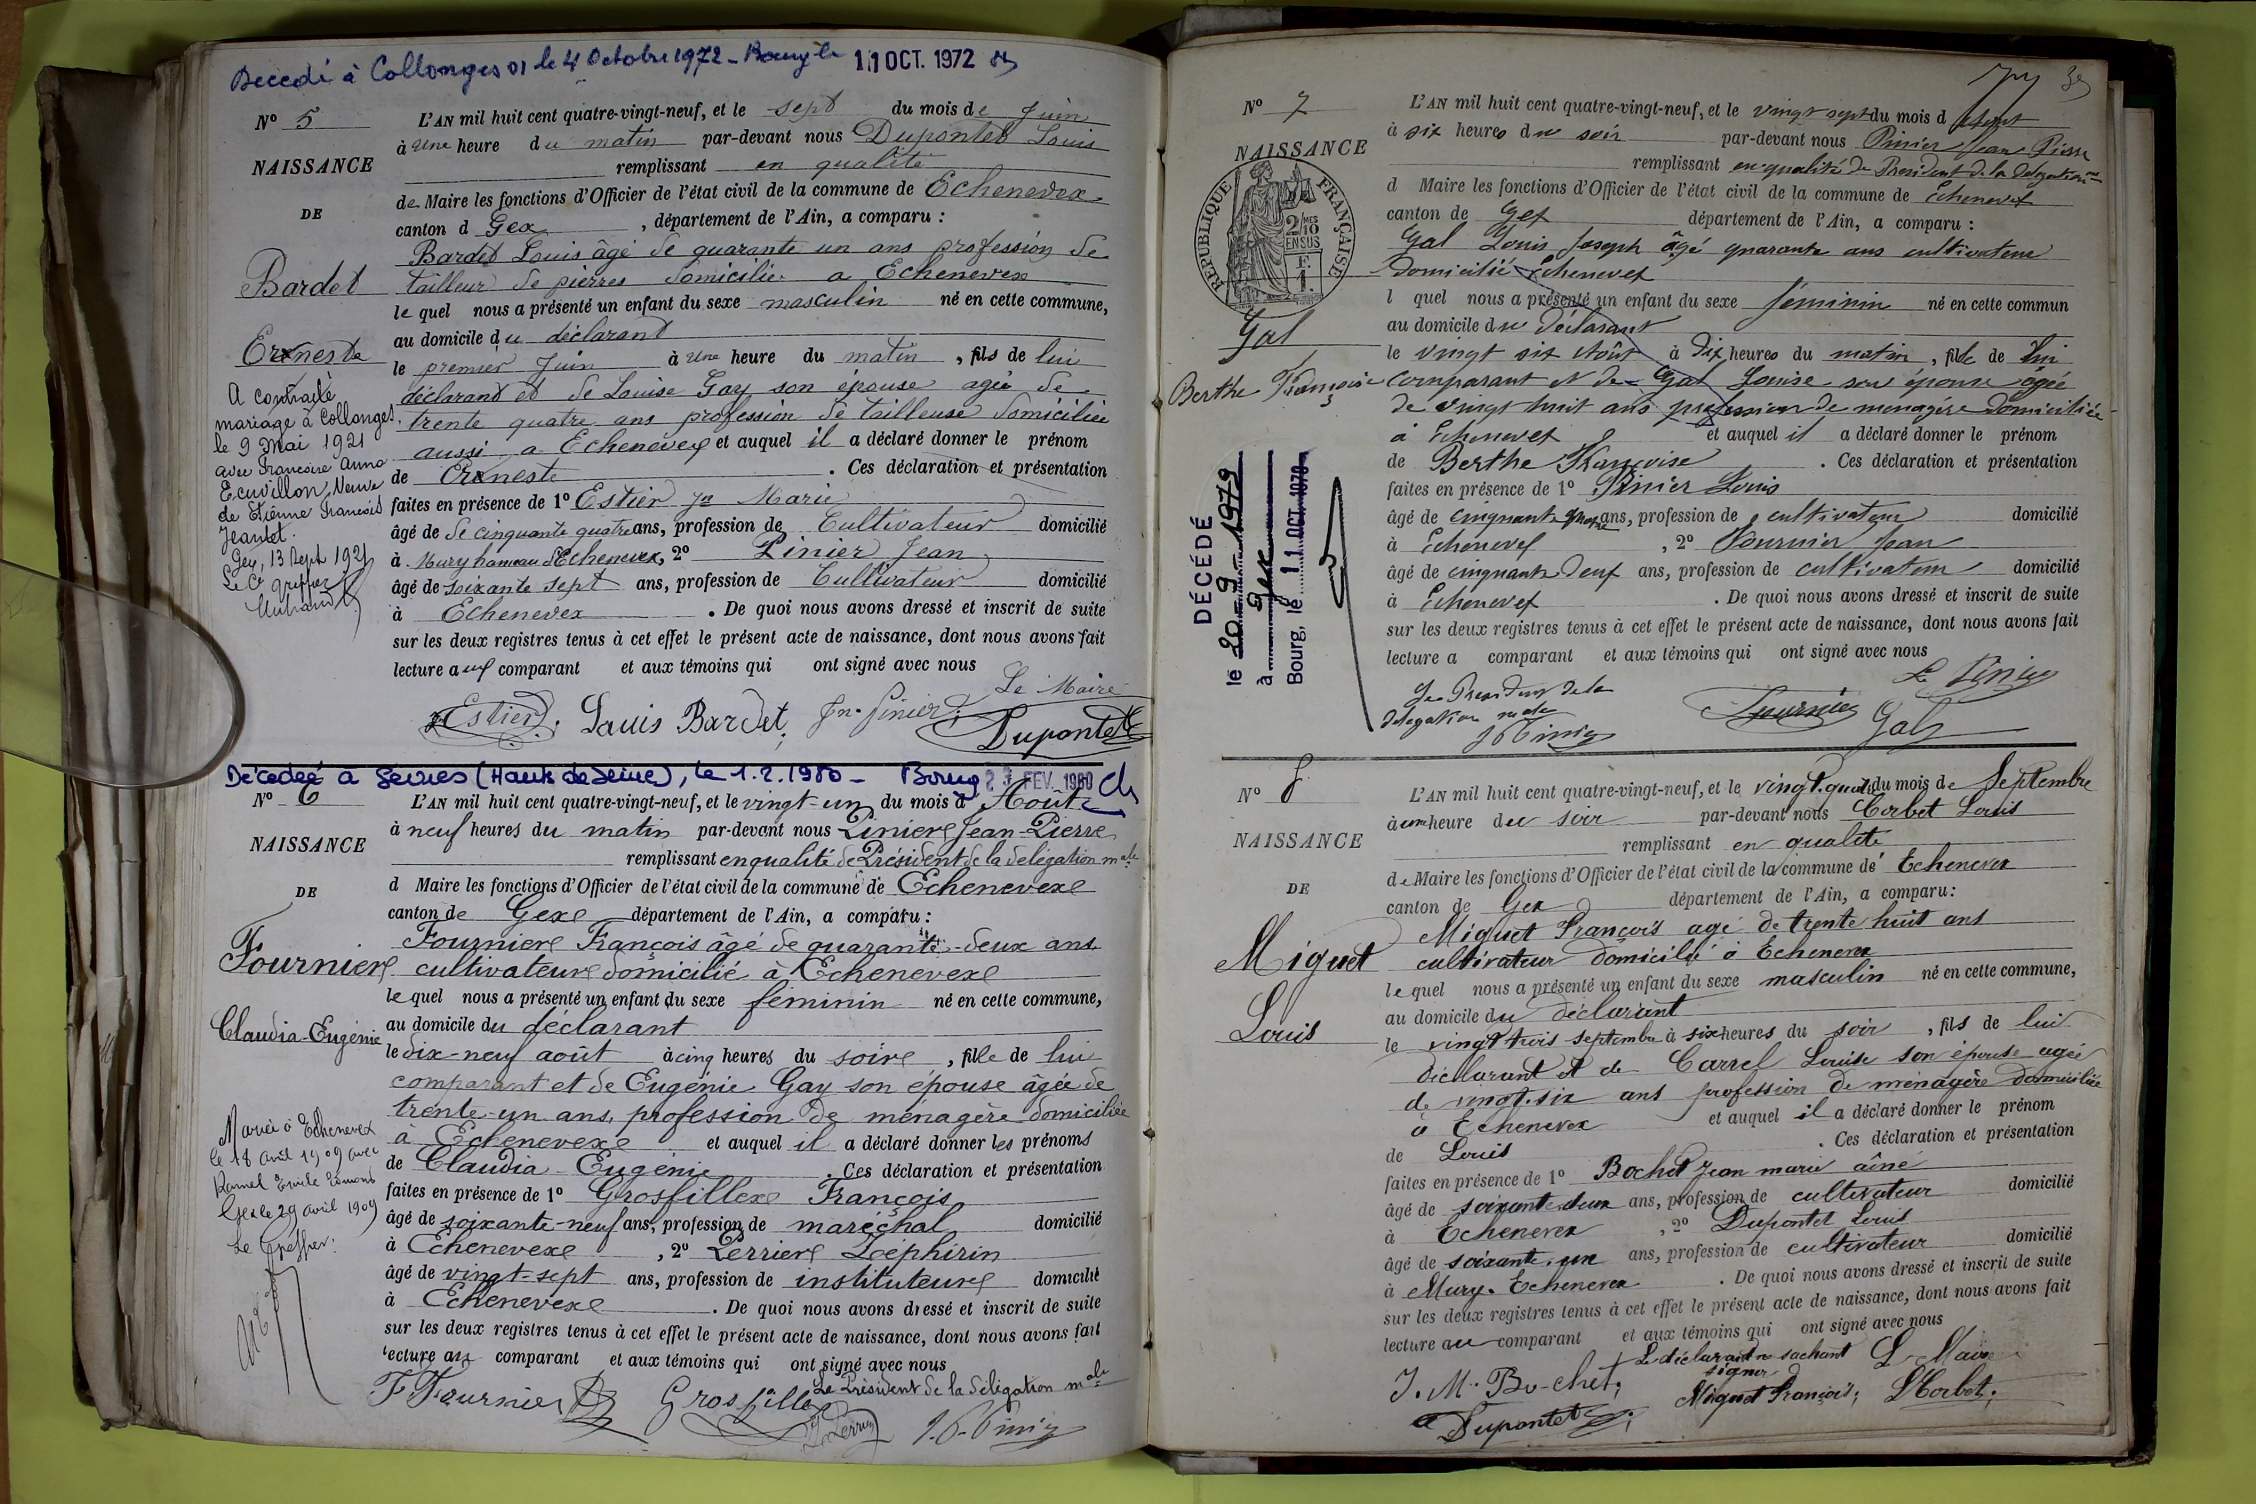 Decedé à Collonges 01 le 4 Octobre 1972 - Bourg le 11 OCT. 1972
N° 5
NAISSANCE
DE
Bardet
Erneste
A contracté
mariage à Collonges
le 9 Mai 1921
avec Françoise Anna
Ecuvillon, Veuve
de Etienne François
Jeantet.
Gex, 13 Sept 1921
Le Cs greffier
L'AN mil huit cent quatre-vingt-neuf, et le sept du mois de Juin
à une heure du matin par-devant nous Dupontet Louis
remplissant en qualité
de Maire les fonctions d'Officier de l'état civil de la commune de Echenevex
canton d Gex, département de l'Ain, a comparu :
Bardet Louis âgé de quarante un ans profession de
tailleur de pierres domicilié a Echenevex
le quel nous a présenté un enfant du sexe masculin né en cette commune,
au domicile du déclarant
le premier Juin à une heure du matin, fils de lui
déclarant et de Louise Gay son épouse agée de
trente quatre ans profession de tailleuse domiciliée
aussi a Echenevex et auquel il a déclaré donner le prénom
de Erneste. Ces déclaration et présentation
faites en présence de 1° Estier Jn Marie
âgé de de cinquante quatre ans, profession de Cultivateur domicilié
à Mury hameau d'Echenevex, 2° Pinier Jean
âgé de soixante sept ans, profession de Cultivateur domicilié
à Echenevex. De quoi nous avons dressé et inscrit de suite
sur les deux registres tenus à cet effet le présent acte de naissance, dont nous avons fait
lecture aux comparant et aux témoins qui ont signé avec nous
Le Maire
Estier. Louis Bardet, Jn. Pinier. Dupontet
Décédée à Sèvres (Hauts de Seine), le 1.2.1980 - Bourg 23 FEV. 1980
N° 6
NAISSANCE
DE
Fournier
Claudia-Eugénie
Mariée à Echenevex
le 18 avril 1909 avec
Ramel Emile Edmond
Gex le 29 avril 1909
Le Greffier.
L'AN mil huit cent quatre-vingt-neuf, et le vingt-un du mois d'Août
à neuf heures du matin par-devant nous Pinier Jean-Pierre
remplissant en qualité de Président de la délégation male
d Maire les fonctions d'Officier de l'état civil de la commune de Echenevex
canton de Gex département de l'Ain, a comparu :
Fournier François âgé de quarante-deux ans
cultivateur domicilié à Echenevex
lequel nous a présenté un enfant du sexe féminin né en cette commune,
au domicile du déclarant
le dix-neuf août à cinq heures du soir, fille de lui
comparant et de Eugénie Gay son épouse âgée de
trente-un ans, profession de ménagère domiciliée
à Echenevex et auquel il a déclaré donner les prénoms
de Claudia Eugénie. Ces déclaration et présentation
faites en présence de 1° Grosfillex François
âgé de soixante-neuf ans, profession de maréchal domicilié
à Echenevex, 2° Perrier Zéphirin
âgé de vingt-sept ans, profession de instituteur domicilié
à Echenevex. De quoi nous avons dressé et inscrit de suite
sur les deux registres tenus à cet effet le présent acte de naissance, dont nous avons fait
lecture au comparant et aux témoins qui ont signé avec nous
Le Président de la délégation male
F. Fournier Grosfillex Perrier J. P. Pinier
N° 7
NAISSANCE
REPUBLIQUE FRANÇAISE
2/10 MES
EN SUS
F.
1.
Gal
Berthe Françoise
DÉCÉDÉ
le 20-9-1979
à Gex
Bourg, le 11 OCT. 1979
L'AN mil huit cent quatre-vingt-neuf, et le vingt sept du mois d Août
à six heures du soir par-devant nous Pinier Jean Pierre
remplissant en qualité de Président de la délégation male
d Maire les fonctions d'Officier de l'état civil de la commune de Echenevex
canton de Gex département de l'Ain, a comparu :
Gal Louis Joseph âgé quarante ans cultivateur
domicilié Echenevex
l quel nous a présenté un enfant du sexe féminin né en cette commun
au domicile du déclarant
le vingt six Août à dix heures du matin, fille de lui
comparant et de Gal Louise son épouse âgée
de vingt huit ans profession de menagère domiciliée
à Echenevex et auquel il a déclaré donner le prénom
de Berthe Françoise. Ces déclaration et présentation
faites en présence de 1° Pinier Louis
âgé de cinquante quatre ans, profession de cultivateur domicilié
à Echenevex, 2° Fournier Jean
âgé de cinquante deux ans, profession de cultivateur domicilié
à Echenevex. De quoi nous avons dressé et inscrit de suite
sur les deux registres tenus à cet effet le présent acte de naissance, dont nous avons fait
lecture a comparant et aux témoins qui ont signé avec nous
Le Président de la
délégation male
J P Pinier Fournier Gal L. Pinier
N° 8
NAISSANCE
DE
Miguet
Louis
L'AN mil huit cent quatre-vingt-neuf, et le vingt.quatre du mois de Septembre
à une heure du soir par-devant nous Corbet Louis
remplissant en qualité
de Maire les fonctions d'Officier de l'état civil de la commune de Echenevex
canton de Gex département de l'Ain, a comparu :
Miguet François agé de trente huit ans
cultivateur domicilié à Echenevex
lequel nous a présenté un enfant du sexe masculin né en cette commune,
au domicile du déclarant
le vingt trois septembre à six heures du soir, fils de lui
déclarant et de Carrel Louise son épouse agée
de vingt.six ans profession de ménagère domiciliée
à Echenevex et auquel il a déclaré donner le prénom
de Louis. Ces déclaration et présentation
faites en présence de 1° Bochet Jean marie aîné
âgé de soixante.deux ans, profession de cultivateur domicilié
à Echenevex, 2° Dupontet Louis
âgé de soixante.un ans, profession de cultivateur domicilié
à Mury. Echenevex. De quoi nous avons dressé et inscrit de suite
sur les deux registres tenus à cet effet le présent acte de naissance, dont nous avons fait
lecture au comparant et aux témoins qui ont signé avec nous
Le déclarant sachant signer Le Maire
J. M. Bochet; Miguet François; L Corbet;
Dupontet;